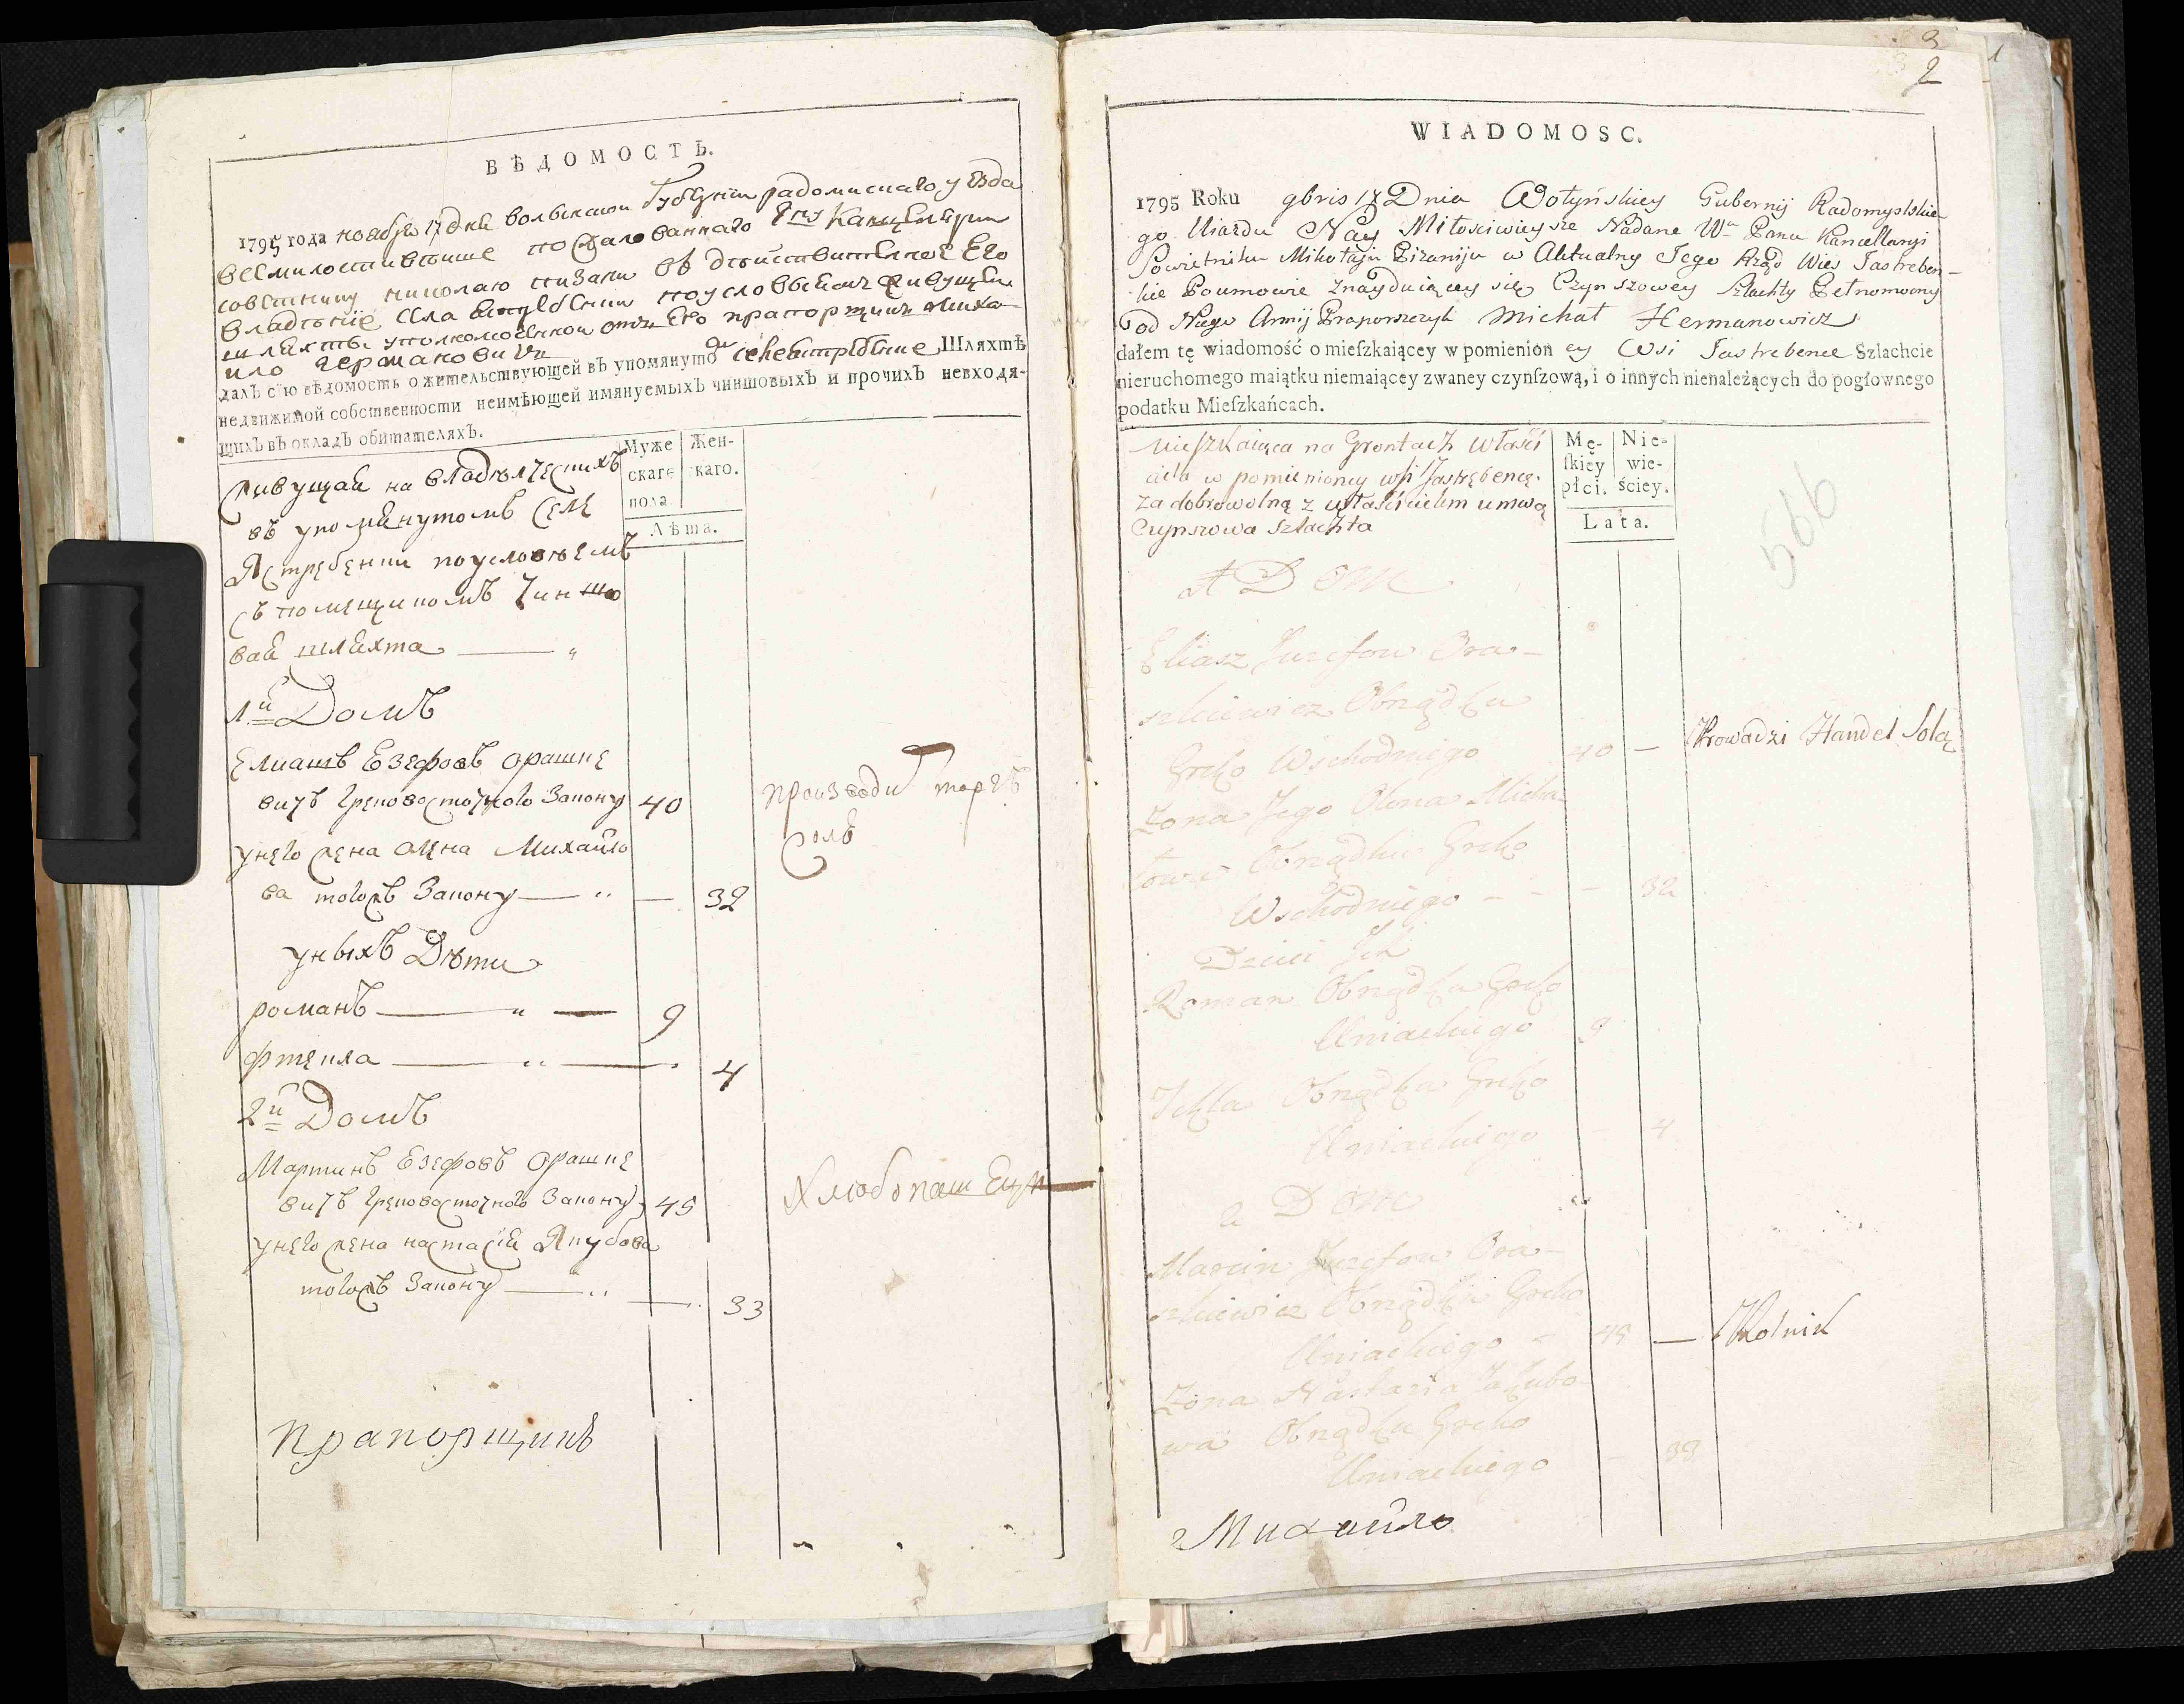 ВѢДОМОСТЬ.
1795 года ноября 17 дня волынской Губернии радомислаго уезда
всемилостивейше пожалованнаго Гну Канцелярии
советнику николаю пизани въ действителное Его
владение села по условыемъ живущем
шляхты уполномоченной отъ Его прапорщикъ Миха
ило Германовичъ
далъ сїю вѣдомость о жительствующей въ упомянуто Шляхтѣ
недвижимой собственности неимѣющей имянуемыхъ чиншовыхъ и прочихъ невходя-
щихъ въ окладъ обитателяхъ.
Живущая на владѣлческихъ
въ упомянутомъ селе
Ястребенки по условѣемъ
съ помещикомъ Чиншо
вая шляхта — "
Муже
скаго
пола
Жен-
скаго.
Лѣта.
1й Домъ
Елиашъ Езефовъ орашке
вичъ грековосточного Закону 40
производи торгъ
соль
унего жена олена Михайло
ва тогожъ Закону — " — 32
уныхъ Дѣти
романъ — " — 9
фтекла — " — 4
2й Домъ
Мартинъ Езефовъ орашке
вичъ грековосточного Закону 45
Хлюбопашецъ
унего жена настасїя Якубова
тогожъ Закону — " — 33
прапорщикъ
3
2
1
WIADOMOSC.
1795 Roku 9bris 17 Dnia Wołyńskiey Gubernij Radomyslskie-
go Uiazdu Nay Miłościwiey sze Nadane Wu Panu Kancellaryi
Sowietniku Mikołaju Pizaniju w Aktualny Jego Rząd Wieś Jastreben-
kie Poumowie znayduiącey się Czynszowey Szlachty Pełnomocny
od Niego Armij Praporszczyk Michał Hermanowicz
dałem tę wiadomość o mieſzkaiącey w pomienion ey Wsi Jastrebence Szlachcie
nieruchomego maiątku niemaiącey zwaney czynſzową, i o innych nienależących do pogłownego
podatku Mieſzkańcach.
Mieszkaiąca na Grontach właści
ciela w pomienioney wsi Jastrębencę.
Za dobrowolną z właścicielem umwą
Czynszowa szlachta
Mę-
ſkiey
płci.
Nie-
wie-
ściey.
Lata.
566
1 Dom
Eliasz Juzefow Ora-
szkiewicz Obrządku
Greko Wschodniego 40 — Prowadzi Handel Solą
Żona Jego Olena Micha-
łowa Obrządku Greko
Wschodniego - - - 32
Dzieci Ich
Roman Obrządku Greko
Uniackiego 9
Tekla Obrządku Greko
Uniackiego - 4
2 Dom
Marcin Juzefow Ora-
szkiewicz Obrządku Greko
Uniackiego - 45 — Rolnik
Żona Nastazia Jakubo
wa Obrządku Greko
Uniackiego - 33
Михайло